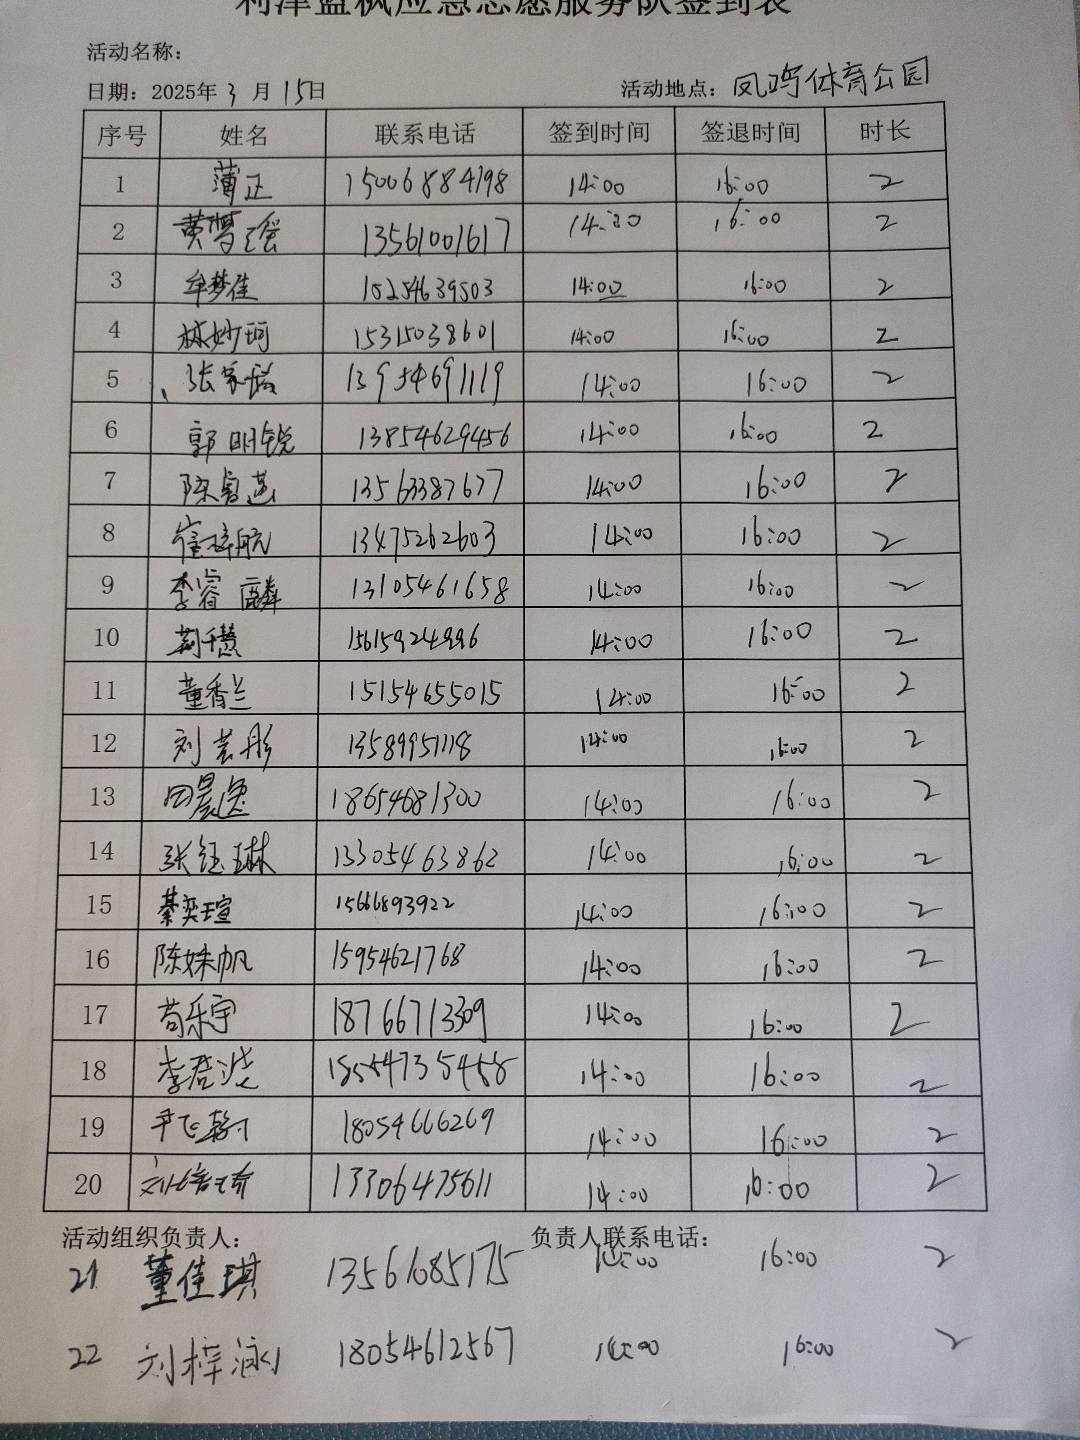 利津蓝枫应急志愿服务队签到表
活动名称：
日期：2025年 3 月 15日 活动地点：凤鸣体育公园
序号 姓名 联系电话 签到时间 签退时间 时长
1 薄正 15006884198 14:00 16:00 2
2 黄梦瑶 13561001617 14:00 16:00 2
3 牟梦佳 15254639503 14:00 16:00 2
4 林妙珂 15315038601 14:00 16:00 2
5 张家 13954691119 14:00 16:00 2
6 郭明锐 13854629456 14:00 16:00 2
7 陈 13563387677 14:00 16:00 2
8 崔梓航 13475262603 14:00 16:00 2
9 李睿麟 13105461658 14:00 16:00 2
10 荆千慧 15615924996 14:00 16:00 2
11 董香兰 15154655015 14:00 16:00 2
12 刘芸彤 13589951118 14:00 16:00 2
13 田晨逸 18654681300 14:00 16:00 2
14 张钰琳 13305463862 14:00 16:00 2
15 綦奕瑄 15666893922 14:00 16:00 2
16 陈姝帆 15954621768 14:00 16:00 2
17 苟乐宇 18766713309 14:00 16:00 2
18 李君 14:00 16:00 2
19 尹飞 18054666269 14:00 16:00 2
20 刘 13306475611 14:00 16:00 2
活动组织负责人： 负责人联系电话：
21 董佳琪 13561685175 14:00 16:00 2
22 刘梓泳 18054612567 14:00 16:00 2